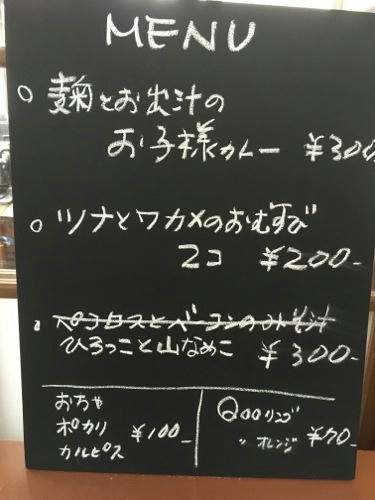 MENU
○ 麹とお出汁の
お子様カレー ¥300
○ ツナとワカメのおむすび
2コ ¥200-
ひろっこと山なめこ ¥300-
おちゃ
ポカリ ¥100-
カルピス
Qooリンゴ
〃 オレンジ ¥70-